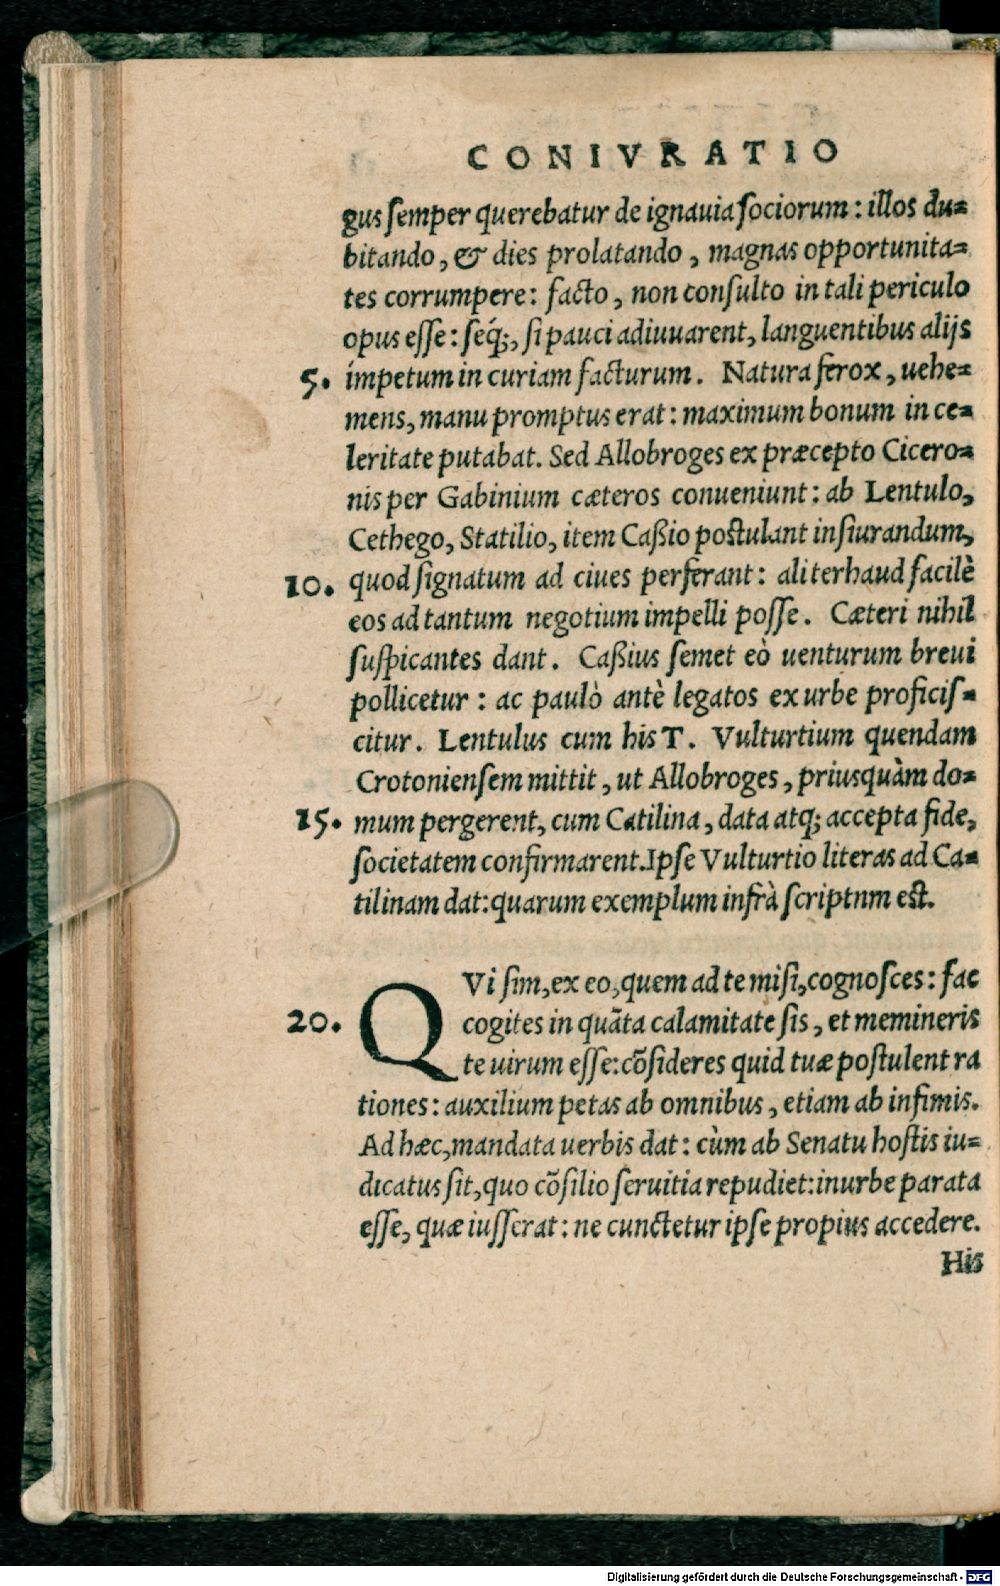 CONIVRATIO
gus ſemper querebatur de ignauia ſociorum: illos du=
bitando, & dies prolatando, magnas opportunita=
tes corrumpere: facto, non conſulto in tali periculo
opus eſſe: ſeq́;, ſi pauci adiuuarent, languentibus alijs
5. impetum in curiam facturum. Natura ferox, uehe=
mens, manu promptus erat: maximum bonum in ce=
leritate putabat. Sed Allobroges ex præcepto Cicero=
nis per Gabinium cæteros conueniunt: ab Lentulo,
Cethego, Statilio, item Caßio poſtulant inſiurandum,
10. quod ſignatum ad ciues perferant: aliter haud facilè
eos ad tantum negotium impelli poſſe. Cæteri nihil
ſuſpicantes dant. Caßius ſemet eò uenturum breui
pollicetur: ac paulò antè legatos ex urbe proficiſ=
citur. Lentulus cum his T. Vulturtium quendam
Crotonienſem mittit, ut Allobroges, priusquàm do=
15. mum pergerent, cum Catilina, data atq; accepta fide,
ſocietatem confirmarent. Ipſe Vulturtio literas ad Ca=
tilinam dat: quarum exemplum infrà ſcriptnm eſt.
QVi ſim, ex eo, quem ad te miſi, cognoſces: fac
20. cogites in quãta calamitate ſis, et memineris
te uirum eſſe: cõſideres quid tuæ poſtulent ra
tiones: auxilium petas ab omnibus, etiam ab infimis.
Ad hæc, mandata uerbis dat: cùm ab Senatu hoſtis iu=
dicatus ſit, quo cõſilio ſeruitia repudiet: in urbe parata
eſſe, quæ iuſſerat: ne cunctetur ipſe propius accedere.
His
Digitalisierung gefördert durch die Deutsche Forschungsgemeinschaft - DFG